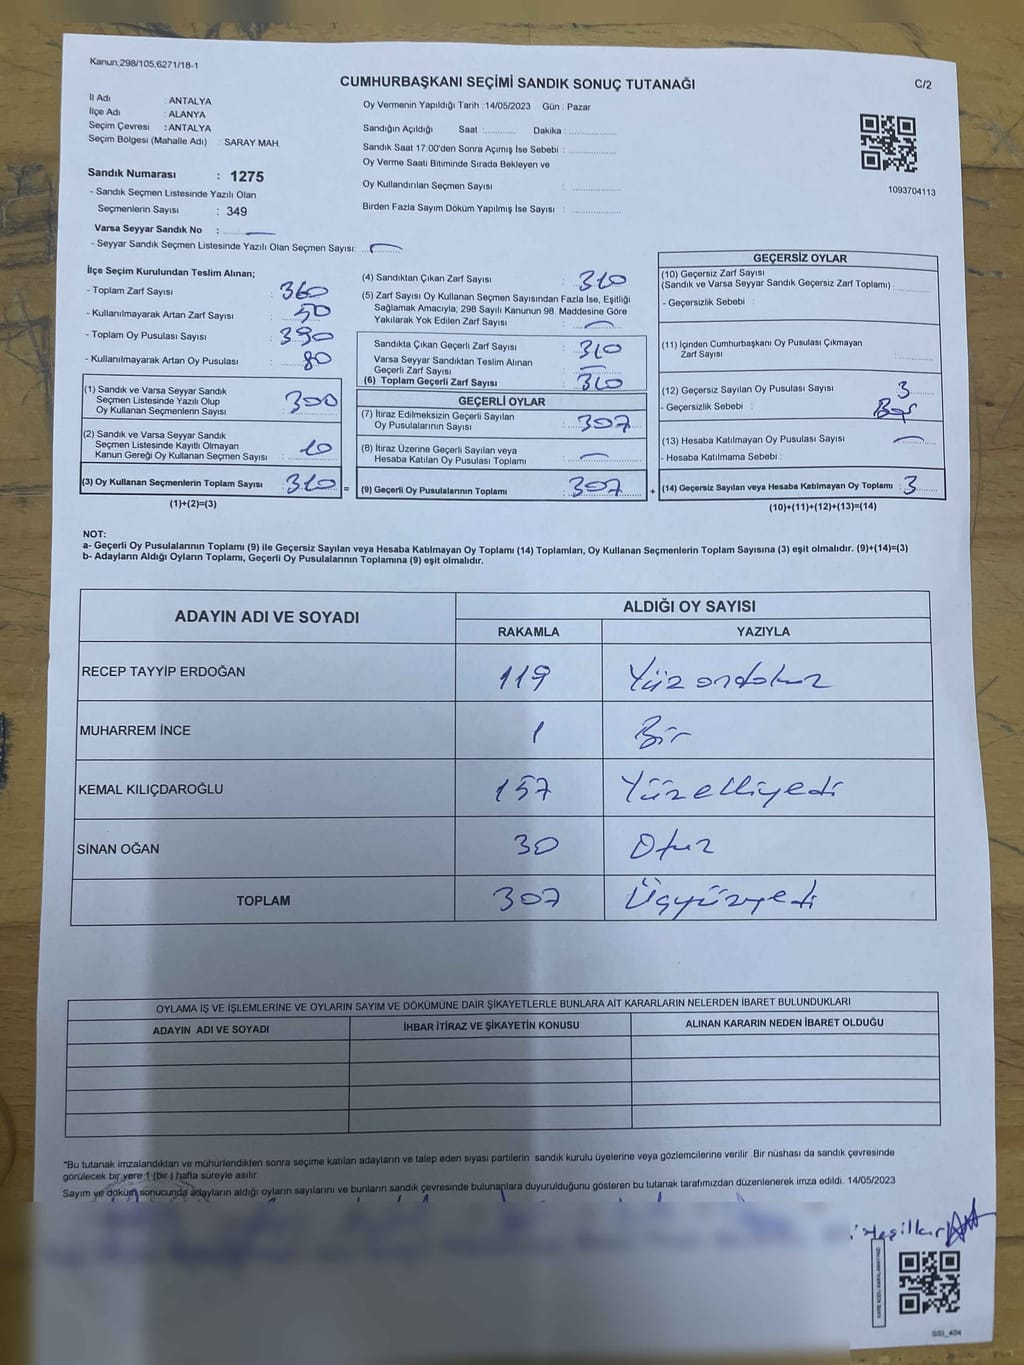 Kanun;298/105,6271/18-1
CUMHURBAŞKANI SEÇİMİ SANDIK SONUÇ TUTANAĞI
C/2
İl Adı : ANTALYA
İlçe Adı : ALANYA
Seçim Çevresi : ANTALYA
Seçim Bölgesi (Mahalle Adı) : SARAY MAH.
Oy Vermenin Yapıldığı Tarih : 14/05/2023 Gün : Pazar
Sandığın Açıldığı Saat :.......... Dakika :..............
Sandık Saat 17:00'den Sonra Açımış İse Sebebi :..............
Oy Verme Saati Bitiminde Sırada Bekleyen ve
Oy Kullandırılan Seçmen Sayısı :..............
Birden Fazla Sayım Döküm Yapılmış İse Sayısı :..............
1093704113
Sandık Numarası : 1275
- Sandık Seçmen Listesinde Yazılı Olan
Seçmenlerin Sayısı : 349
Varsa Seyyar Sandık No : —
- Seyyar Sandık Seçmen Listesinde Yazılı Olan Seçmen Sayısı: —
İlçe Seçim Kurulundan Teslim Alınan;
- Toplam Zarf Sayısı : 360
- Kullanılmayarak Artan Zarf Sayısı : 50
- Toplam Oy Pusulası Sayısı : 390
- Kullanılmayarak Artan Oy Pusulası : 80
(1) Sandık ve Varsa Seyyar Sandık
Seçmen Listesinde Yazılı Olup
Oy Kullanan Seçmenlerin Sayısı : 300
(2) Sandık ve Varsa Seyyar Sandık
Seçmen Listesinde Kayıtlı Olmayan
Kanun Gereği Oy Kullanan Seçmen Sayısı : 10
(3) Oy Kullanan Seçmenlerin Toplam Sayısı : 310 =
(1)+(2)=(3)
(4) Sandıktan Çıkan Zarf Sayısı : 310
(5) Zarf Sayısı Oy Kullanan Seçmen Sayısından Fazla İse, Eşitliği
Sağlamak Amacıyla; 298 Sayılı Kanunun 98. Maddesine Göre
Yakılarak Yok Edilen Zarf Sayısı : —
Sandıkta Çıkan Geçerli Zarf Sayısı : 310
Varsa Seyyar Sandıktan Teslim Alınan
Geçerli Zarf Sayısı : —
(6) Toplam Geçerli Zarf Sayısı : 310
GEÇERLİ OYLAR
(7) İtiraz Edilmeksizin Geçerli Sayılan
Oy Pusulalarının Sayısı : 307
(8) İtiraz Üzerine Geçerli Sayılan veya
Hesaba Katılan Oy Pusulası Toplamı : —
(9) Geçerli Oy Pusulalarının Toplamı : 307 +
GEÇERSİZ OYLAR
(10) Geçersiz Zarf Sayısı
(Sandık ve Varsa Seyyar Sandık Geçersiz Zarf Toplamı) :..........
- Geçersizlik Sebebi :
(11) İçinden Cumhurbaşkanı Oy Pusulası Çıkmayan
Zarf Sayısı :..........
(12) Geçersiz Sayılan Oy Pusulası Sayısı : 3
- Geçersizlik Sebebi : Boş
(13) Hesaba Katılmayan Oy Pusulası Sayısı : —
- Hesaba Katılmama Sebebi :
(14) Geçersiz Sayılan veya Hesaba Katılmayan Oy Toplamı : 3
(10)+(11)+(12)+(13)=(14)
NOT:
a- Geçerli Oy Pusulalarının Toplamı (9) ile Geçersiz Sayılan veya Hesaba Katılmayan Oy Toplamı (14) Toplamları, Oy Kullanan Seçmenlerin Toplam Sayısına (3) eşit olmalıdır. (9)+(14)=(3)
b- Adayların Aldığı Oyların Toplamı, Geçerli Oy Pusulalarının Toplamına (9) eşit olmalıdır.
ADAYIN ADI VE SOYADI
ALDIĞI OY SAYISI
RAKAMLA YAZIYLA
RECEP TAYYİP ERDOĞAN 119 Yüz ondokuz
MUHARREM İNCE 1 Bir
KEMAL KILIÇDAROĞLU 157 Yüzelliyedi
SİNAN OĞAN 30 Otuz
TOPLAM 307 Üçyüzyedi
OYLAMA İŞ VE İŞLEMLERİNE VE OYLARIN SAYIM VE DÖKÜMÜNE DAİR ŞİKAYETLERLE BUNLARA AİT KARARLARIN NELERDEN İBARET BULUNDUKLARI
ADAYIN ADI VE SOYADI İHBAR İTİRAZ VE ŞİKAYETİN KONUSU ALINAN KARARIN NEDEN İBARET OLDUĞU
*Bu tutanak imzalandıktan ve mühürlendikten sonra seçime katılan adayların ve talep eden siyasi partilerin sandık kurulu üyelerine veya gözlemcilerine verilir .Bir nüshası da sandık çevresinde
görülecek bir yere 1 (bir ) hafta süreyle asılır
Sayım ve döküm sonucunda adayların aldığı oyların sayılarını ve bunların sandık çevresinde bulunanlara duyurulduğunu gösteren bu tutanak tarafımızdan düzenlenerek imza edildi. 14/05/2023
SSI_404